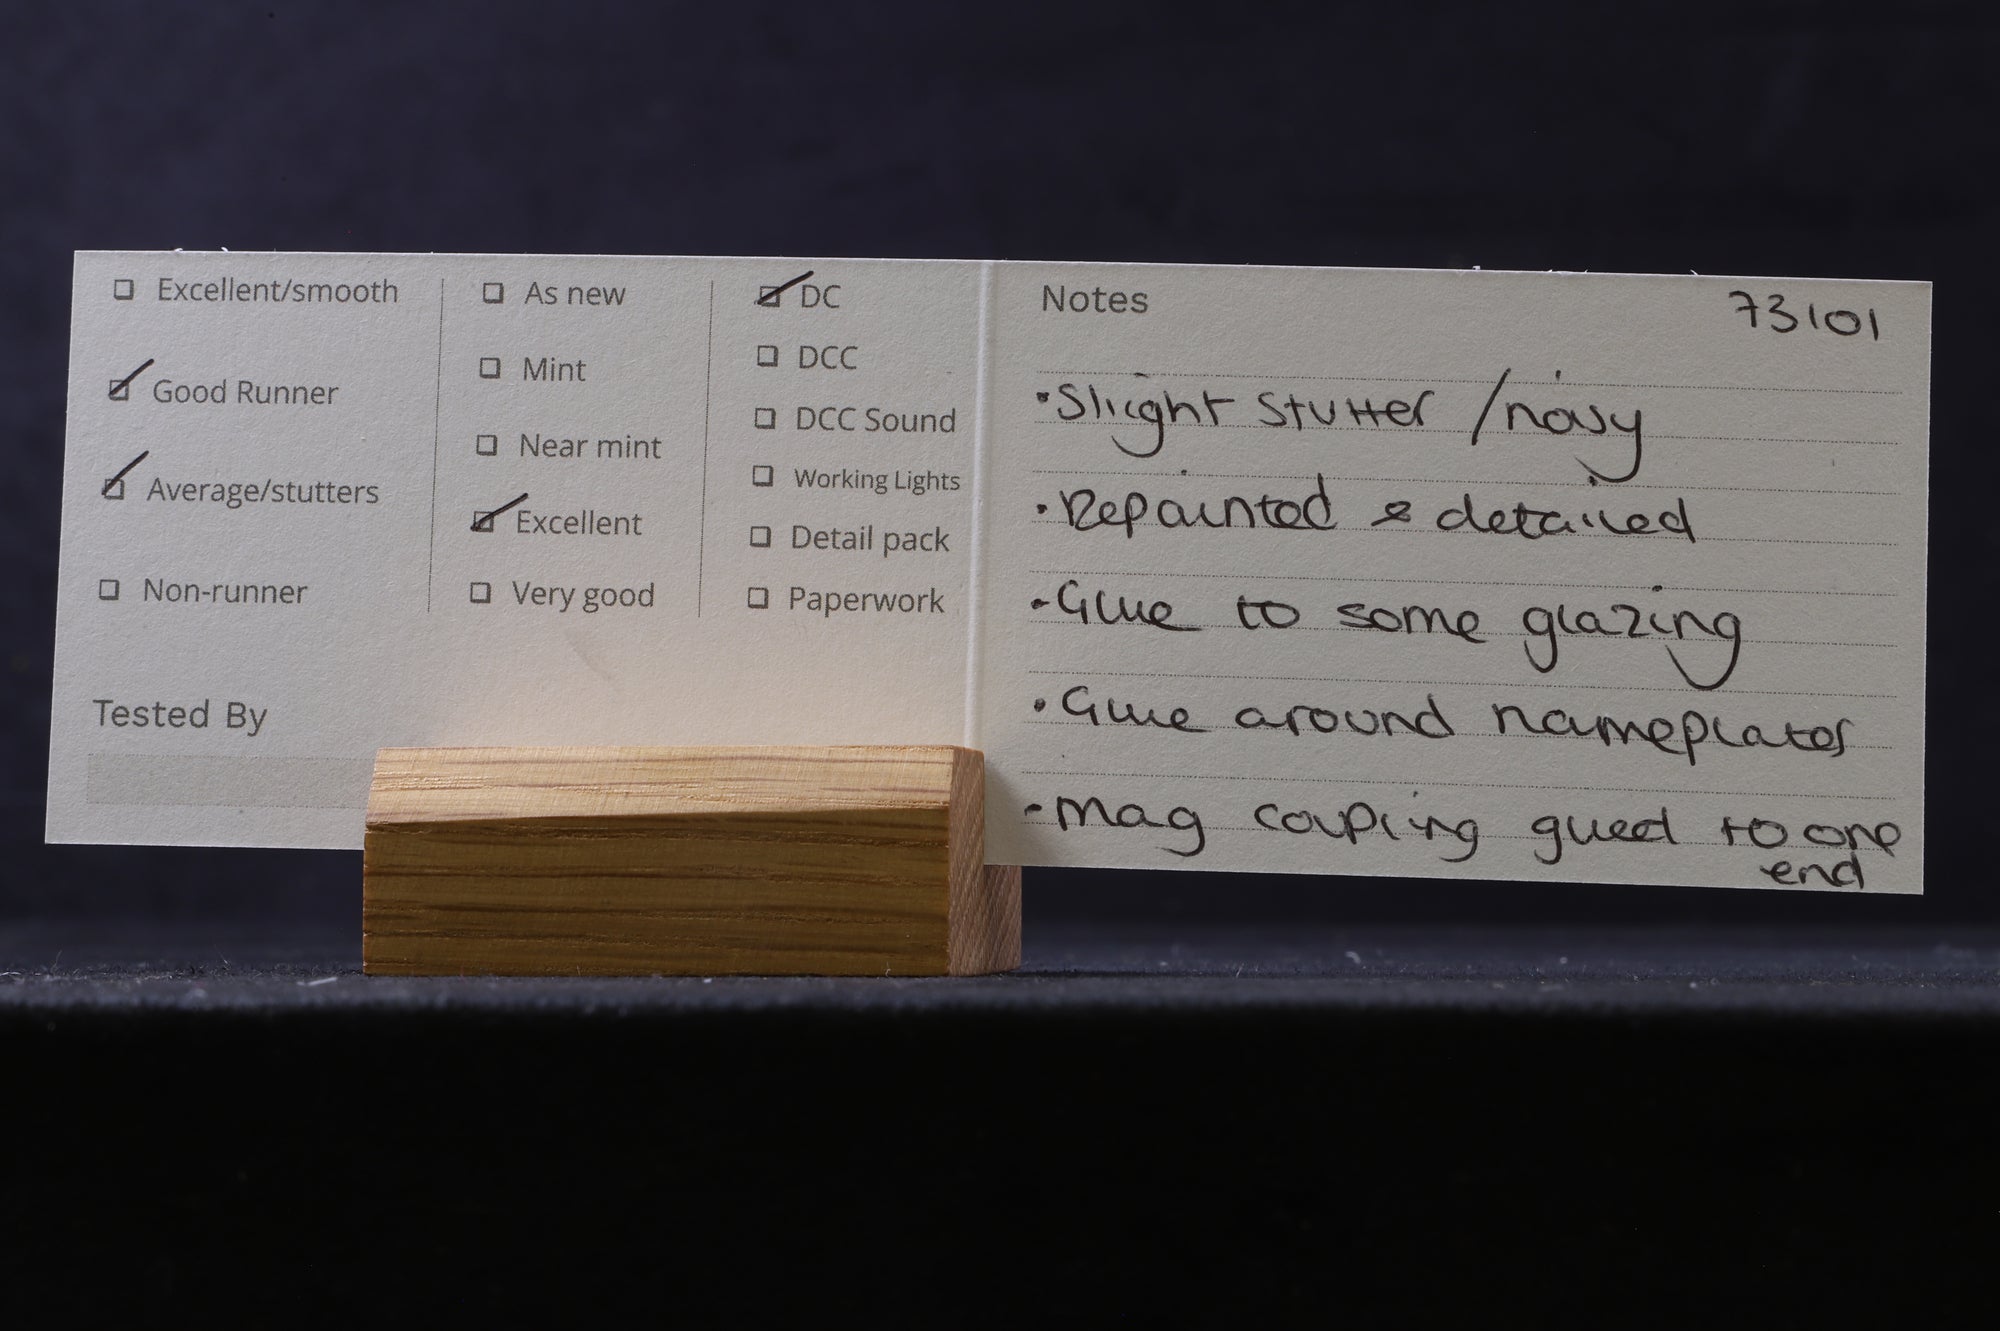 ☐ Excellent/smooth
☑ Good Runner
☑ Average/stutters
☐ Non-runner
☐ As new
☐ Mint
☐ Near mint
☑ Excellent
☐ Very good
☑ DC
☐ DCC
☐ DCC Sound
☐ Working Lights
☐ Detail pack
☐ Paperwork
Tested By
Notes
73101
• Slight stutter / noisy
• Repainted & detailed
• Glue to some glazing
• Glue around nameplates
• Mag coupling glued to one
end